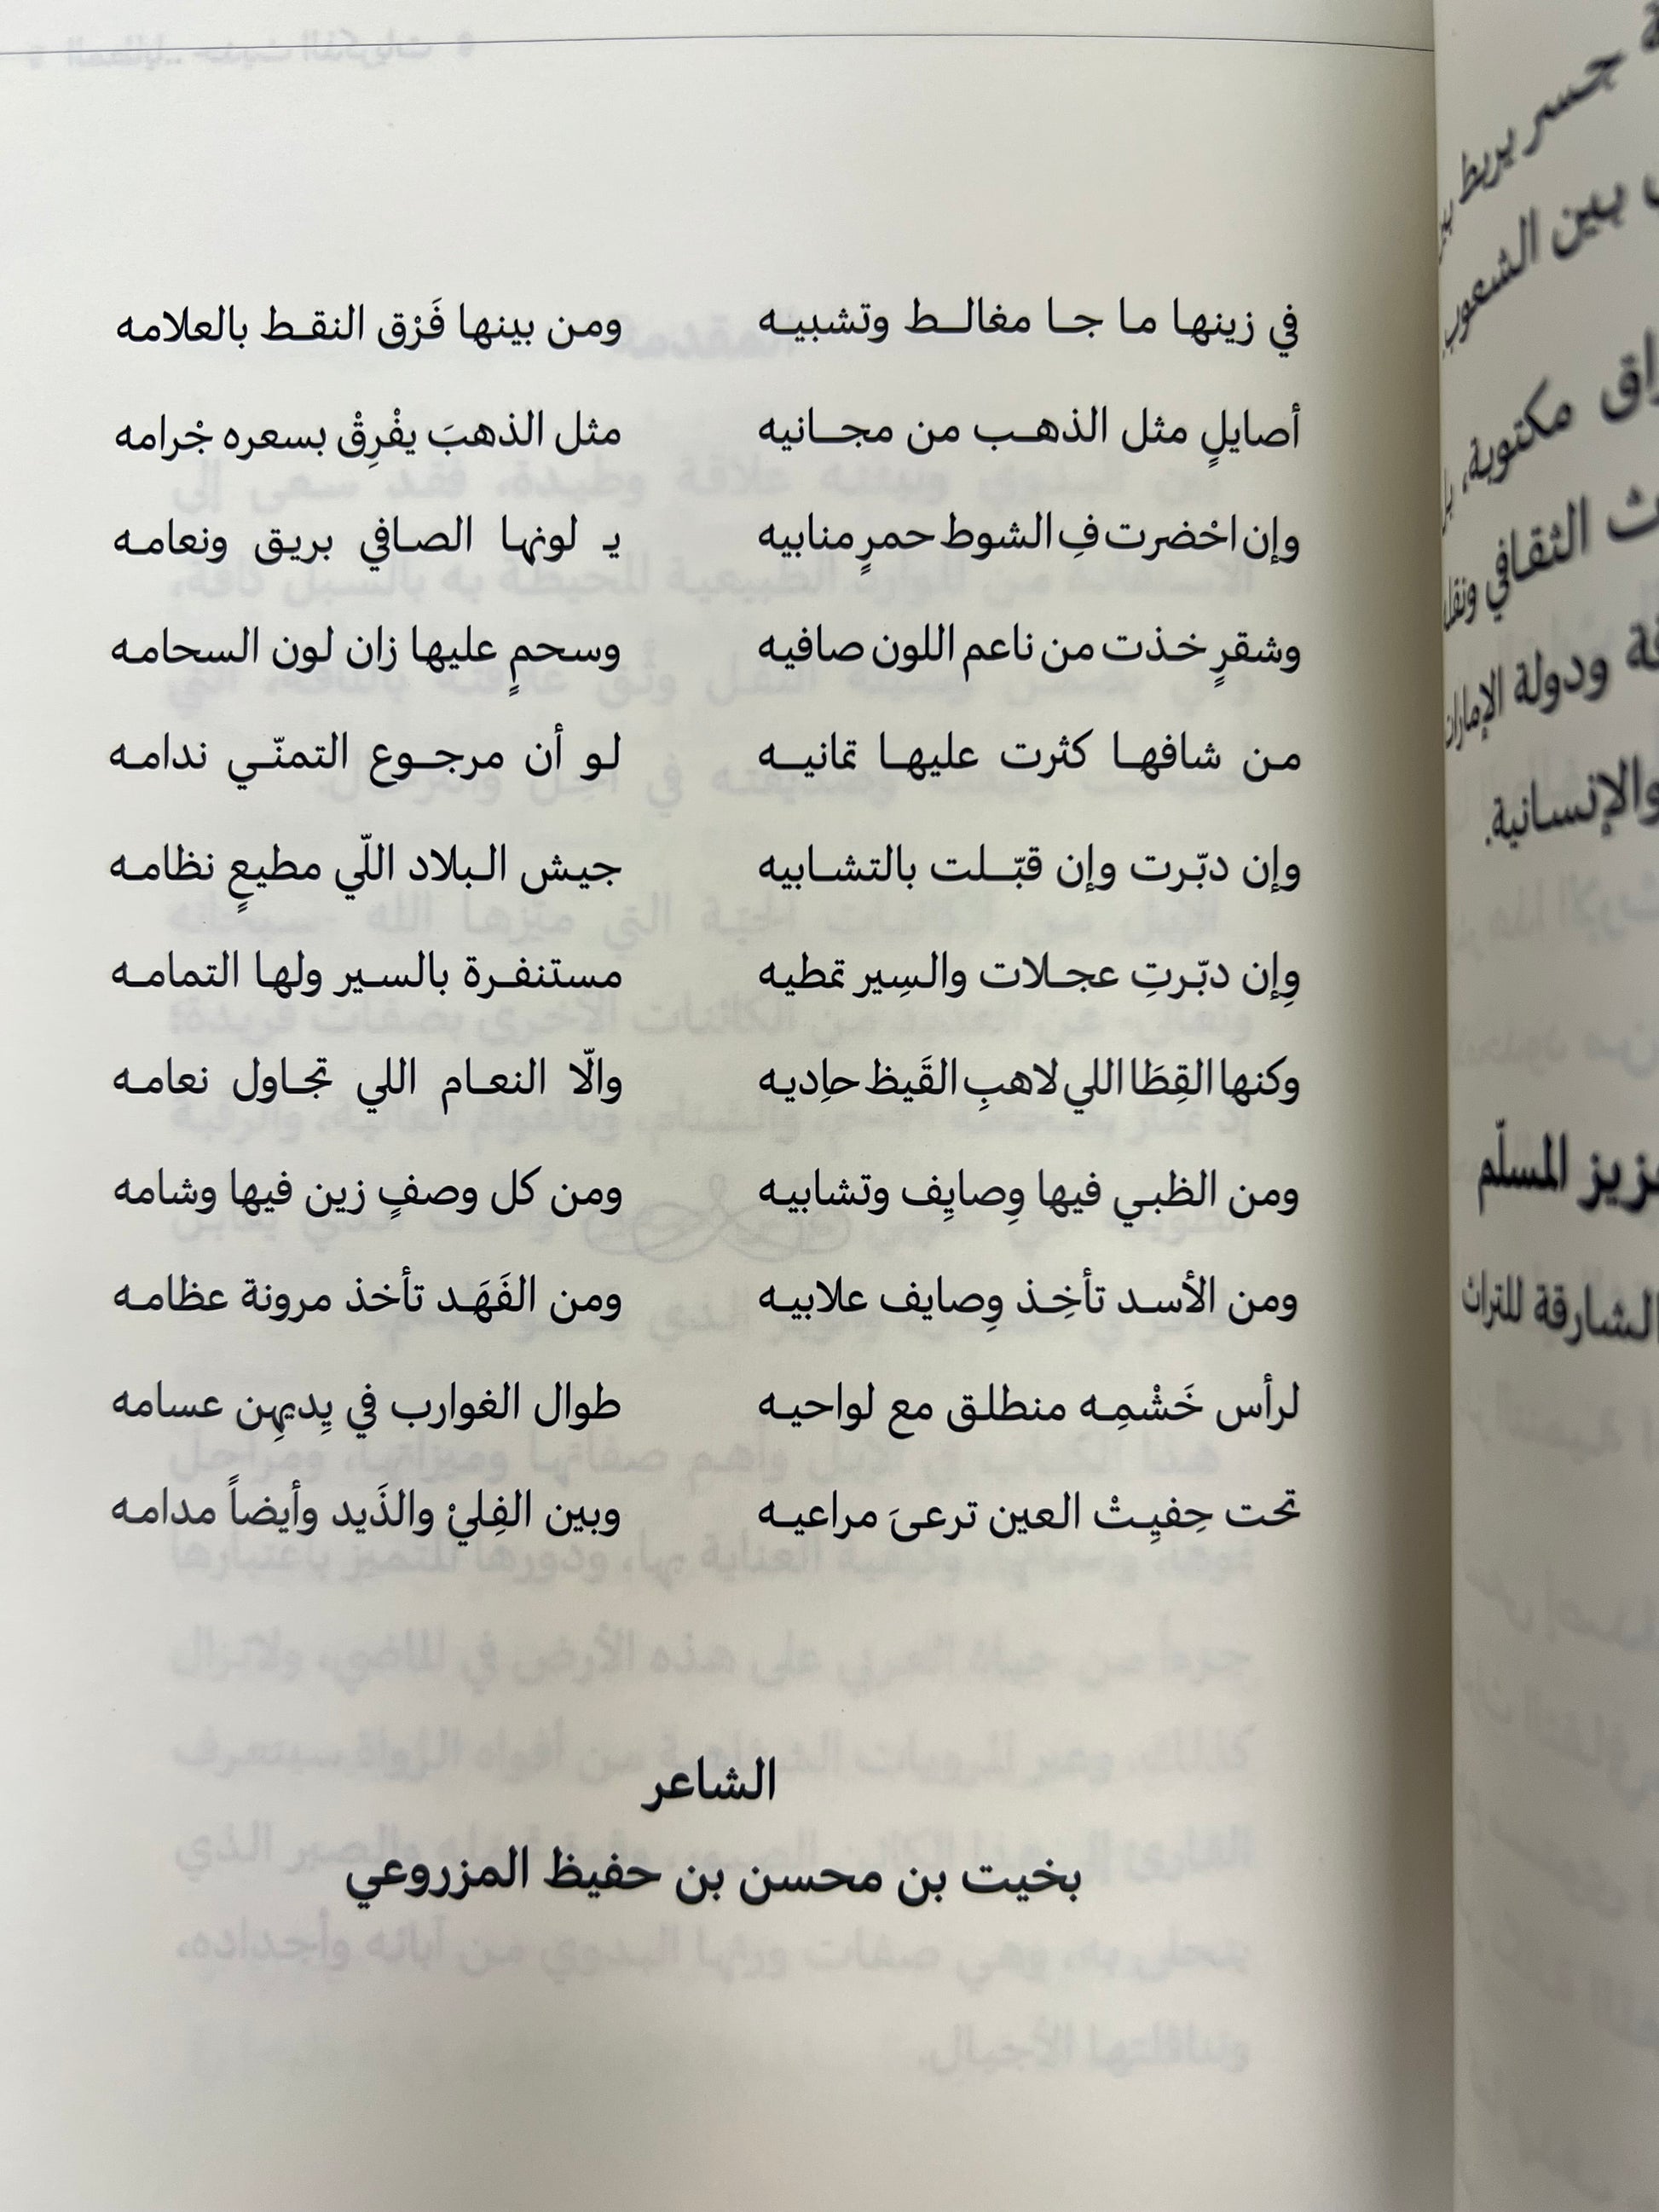 في زينها ما جا مغالط وتشبيه ومن بينها فَرْق النقط بالعلامه
أصايلٍ مثل الذهب من مجانيه مثل الذهبَ يفْرِقْ بسعره جْرامه
وإن احْضرت فِ الشوط حمرٍ منابيه يـ لونها الصافي بريق ونعامه
وشقرٍ خذت من ناعم اللون صافيه وسحمٍ عليها زان لون السحامه
من شافها كثرت عليها تمانيه لو أن مرجوع التمنّي ندامه
وإن دبّرت وإن قبّلت بالتشابيه جيش البلاد اللّي مطيعٍ نظامه
وِإن دبّرتِ عجلات والسِير تمطيه مستنفرة بالسير ولها التمامه
وكنها القِطَا اللي لاهبِ القَيظ حاِديه والّا النعام اللي تجاول نعامه
ومن الظبي فيها وِصايِف وتشابيه ومن كل وصفٍ زين فيها وشامه
ومن الأسد تأخِذ وِصايف علابيه ومن الفَهَد تأخذ مرونة عظامه
لرأس خَشْمِه منطلق مع لواحيه طوال الغوارب في يِديهِن عسامه
تحت حِفيِتْ العين ترعىَ مراعيه وبين الفِليْ والذَيد وأيضاً مدامه
الشاعر
بخيت بن محسن بن حفيظ المزروعي
جسر يربط
بين الشعوب
مكتوبة، بل
الثقافي ونقله
ودولة الإمارات
والإنسانية.
المسلّم
الشارقة للتراث